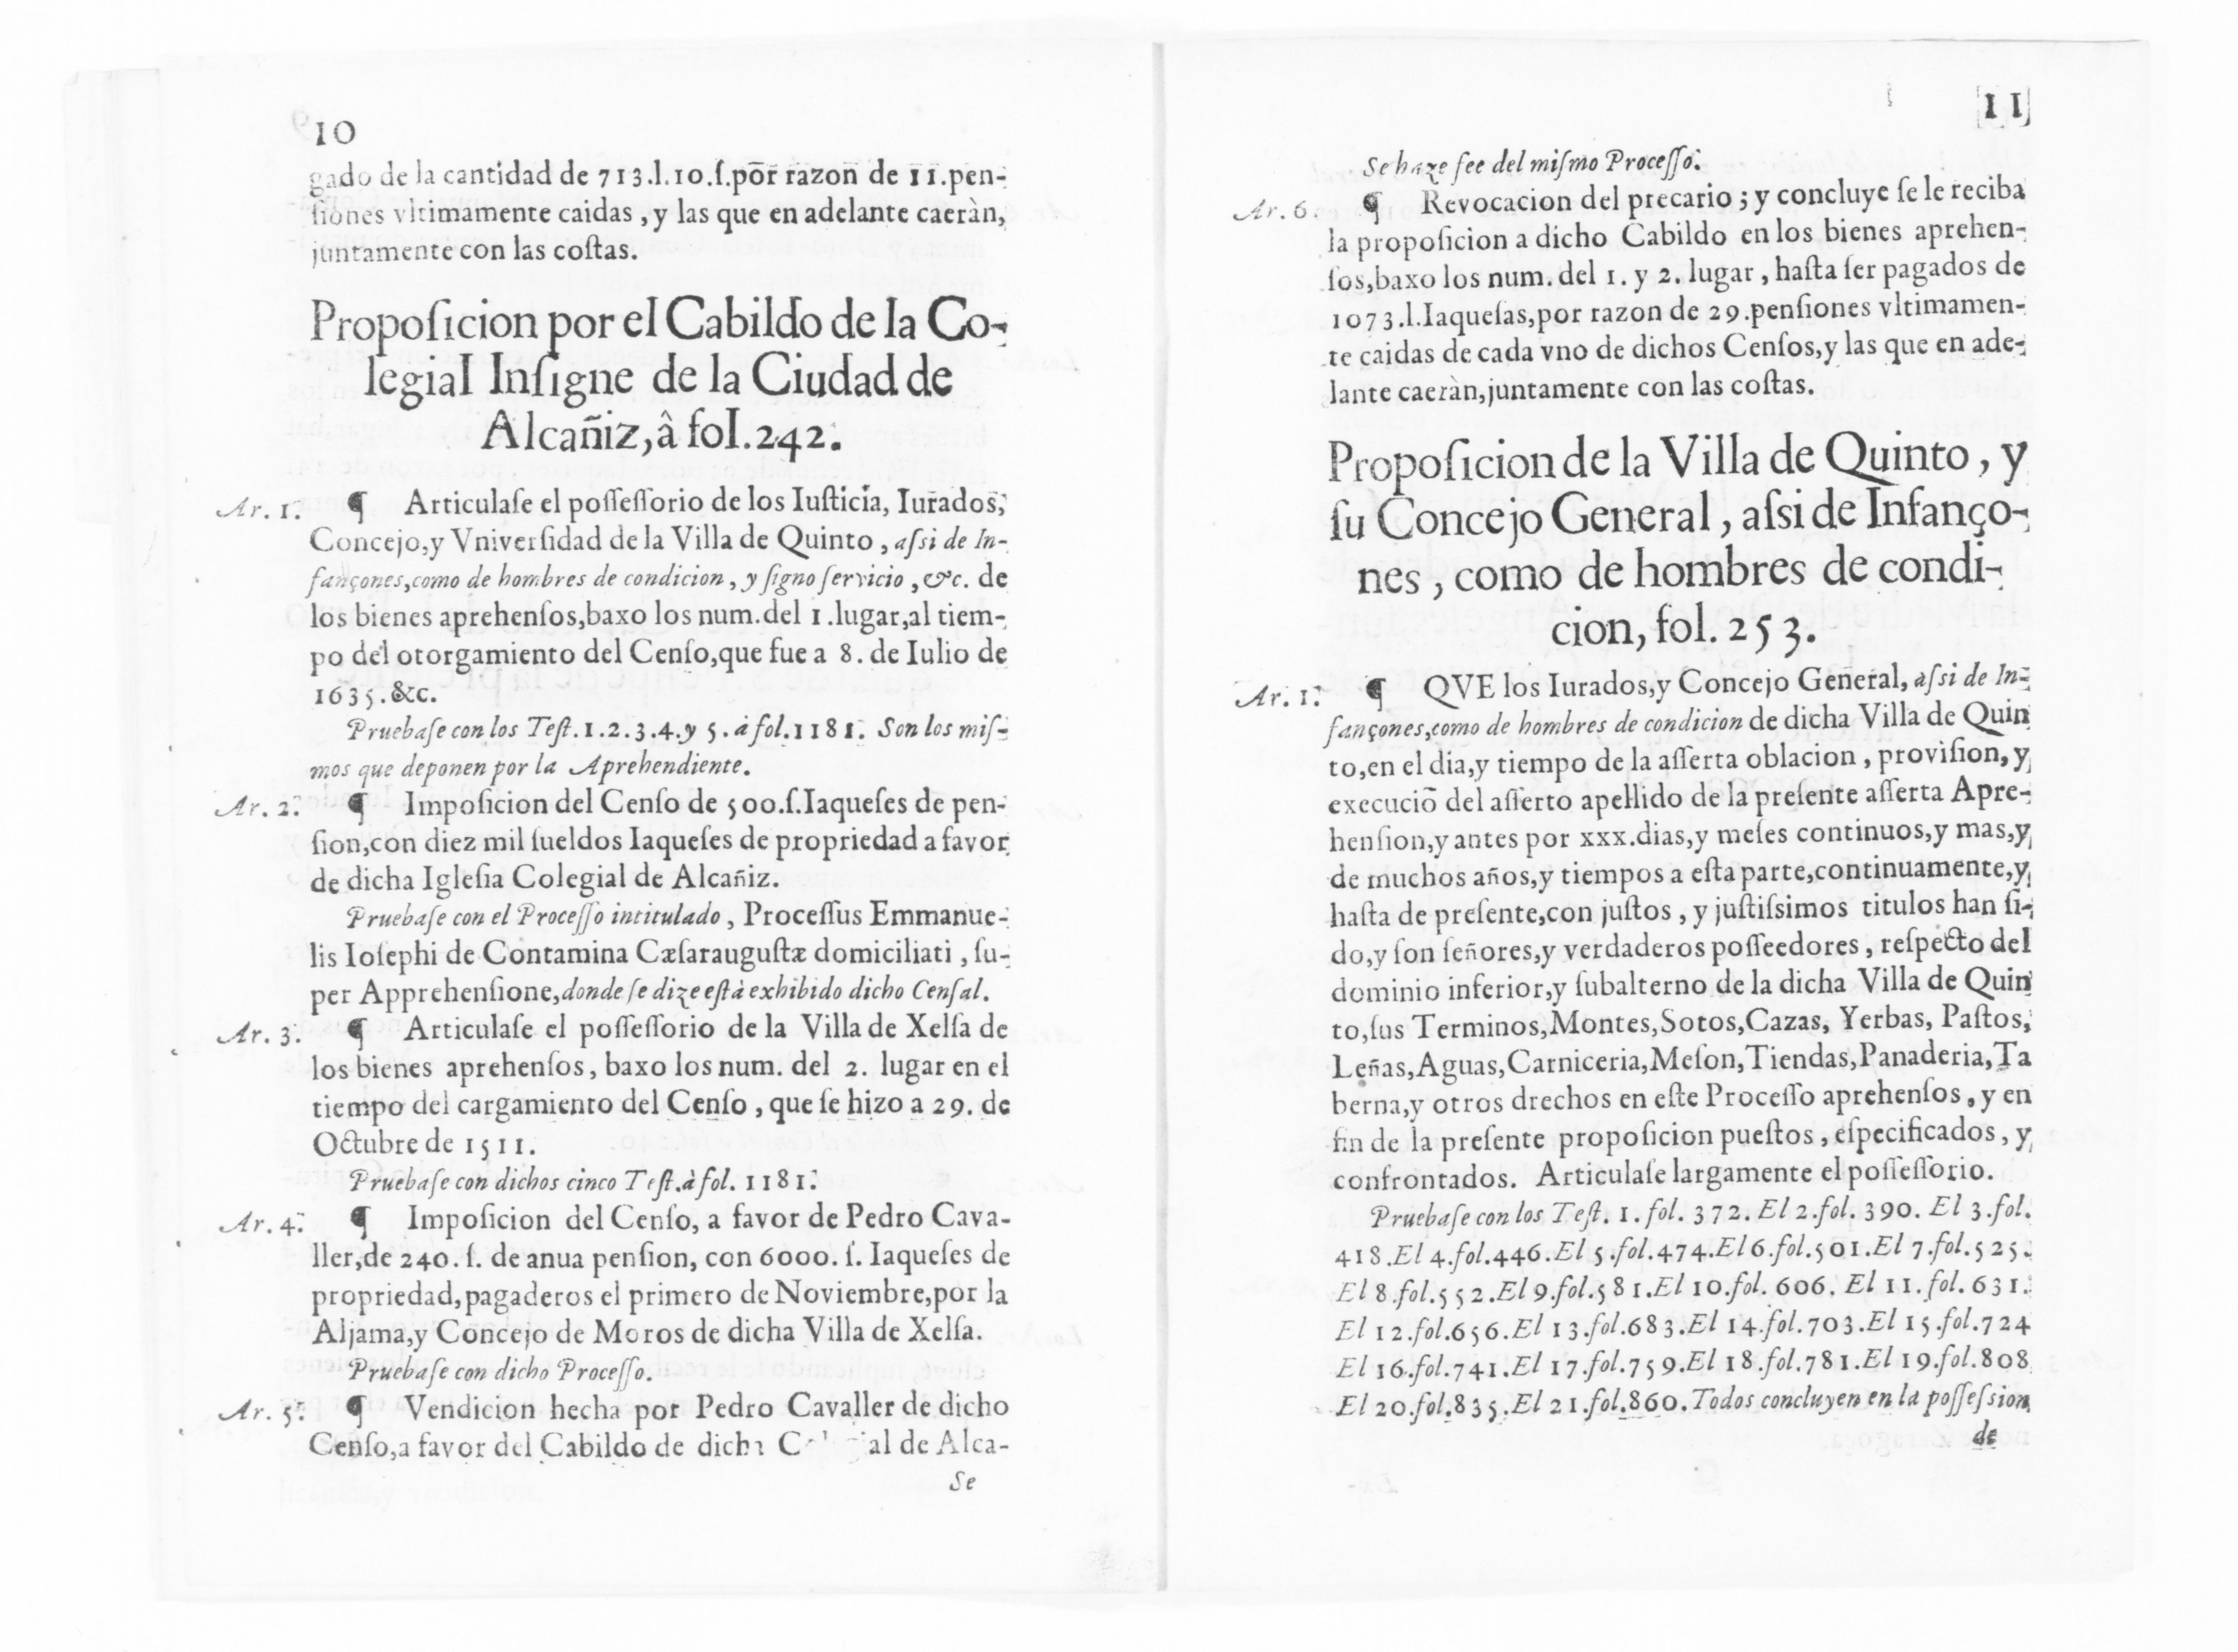 10
gado de la cantidad de 713.l.10.ſ.por razon de 11.pen-
ſiones vltimamente caidas, y las que en adelante caeràn,
juntamente con las coſtas.
Propoſicion por el Cabildo de la Co-
legial Inſigne de la Ciudad de
Alcañiz, â fol.242.
Ar. 1. ¶ Articulaſe el poſſeſſorio de los Iuſticia, Iurados,
Concejo,y Vniverſidad de la Villa de Quinto, aſsi de In-
fançones,como de hombres de condicion, y ſigno ſervicio, &c. de
los bienes aprehenſos,baxo los num.del 1.lugar,al tiem-
po del otorgamiento del Cenſo,que fue a 8. de Iulio de
1635.&c.
Pruebaſe con los Teſt.1.2.3.4.y 5. à fol.1181. Son los miſ-
mos que deponen por la Aprehendiente.
Ar. 2. ¶ Impoſicion del Cenſo de 500.ſ.Iaqueſes de pen-
ſion,con diez mil ſueldos Iaqueſes de propriedad a favor
de dicha Igleſia Colegial de Alcañiz.
Pruebaſe con el Proceſſo intitulado, Proceſſus Emmanue-
lis Ioſephi de Contamina Cæſarauguſtæ domiciliati, ſu-
per Apprehenſione, donde ſe dize eſtà exhibido dicho Cenſal.
Ar. 3. ¶ Articulaſe el poſſeſſorio de la Villa de Xelſa de
los bienes aprehenſos, baxo los num. del 2. lugar en el
tiempo del cargamiento del Cenſo, que ſe hizo a 29. de
Octubre de 1511.
Pruebaſe con dichos cinco Teſt.à fol. 1181.
Ar. 4. ¶ Impoſicion del Cenſo, a favor de Pedro Cava-
ller,de 240. ſ. de anua penſion, con 6000. ſ. Iaqueſes de
propriedad,pagaderos el primero de Noviembre,por la
Aljama,y Concejo de Moros de dicha Villa de Xelſa.
Pruebaſe con dicho Proceſſo.
Ar. 5. ¶ Vendicion hecha por Pedro Cavaller de dicho
Cenſo,a favor del Cabildo de dicha de Alca-
Se
11
Se haze fee del miſmo Proceſſo.
Ar. 6. ¶ Revocacion del precario; y concluye ſe le reciba
la propoſicion a dicho Cabildo en los bienes aprehen-
ſos,baxo los num. del 1. y 2. lugar, haſta ſer pagados de
1073.l.Iaqueſas,por razon de 29.penſiones vltimamen-
te caidas de cada vno de dichos Cenſos,y las que en ade-
lante caeràn,juntamente con las coſtas.
Propoſicion de la Villa de Quinto, y
ſu Concejo General, aſsi de Infanço-
nes, como de hombres de condi-
cion, fol. 253.
Ar. 1. ¶ QVE los Iurados,y Concejo General, aſsi de In-
fançones,como de hombres de condicion de dicha Villa de Quin
to,en el dia,y tiempo de la aſſerta oblacion, proviſion, y
execuciõ del aſſerto apellido de la preſente aſſerta Apre-
henſion,y antes por xxx.dias,y meſes continuos,y mas,y
de muchos años,y tiempos a eſta parte,continuamente,y
haſta de preſente,con juſtos, y juſtiſsimos titulos han ſi-
do,y ſon ſeñores,y verdaderos poſſeedores, reſpecto del
dominio inferior,y ſubalterno de la dicha Villa de Quin
to,ſus Terminos,Montes,Sotos,Cazas, Yerbas, Paſtos,
Leñas,Aguas,Carniceria,Meſon,Tiendas,Panaderia,Ta
berna,y otros drechos en eſte Proceſſo aprehenſos, y en
fin de la preſente propoſicion pueſtos, eſpecificados, y
confrontados. Articulaſe largamente el poſſeſſorio.
Pruebaſe con los Teſt. 1. fol. 372. El 2.fol. 390. El 3.fol.
418.El 4.fol.446.El 5.fol.474.El 6.fol.501.El 7.fol.525.
El 8.fol.552.El 9.fol.581.El 10.fol. 606. El 11. fol. 631.
El 12.fol.656.El 13.fol.683.El 14.fol.703.El 15.fol.724
El 16.fol.741.El 17.fol.759.El 18.fol.781.El 19.fol.808
El 20.fol.835.El 21.fol.860.Todos concluyen en la poſſeſsion
de